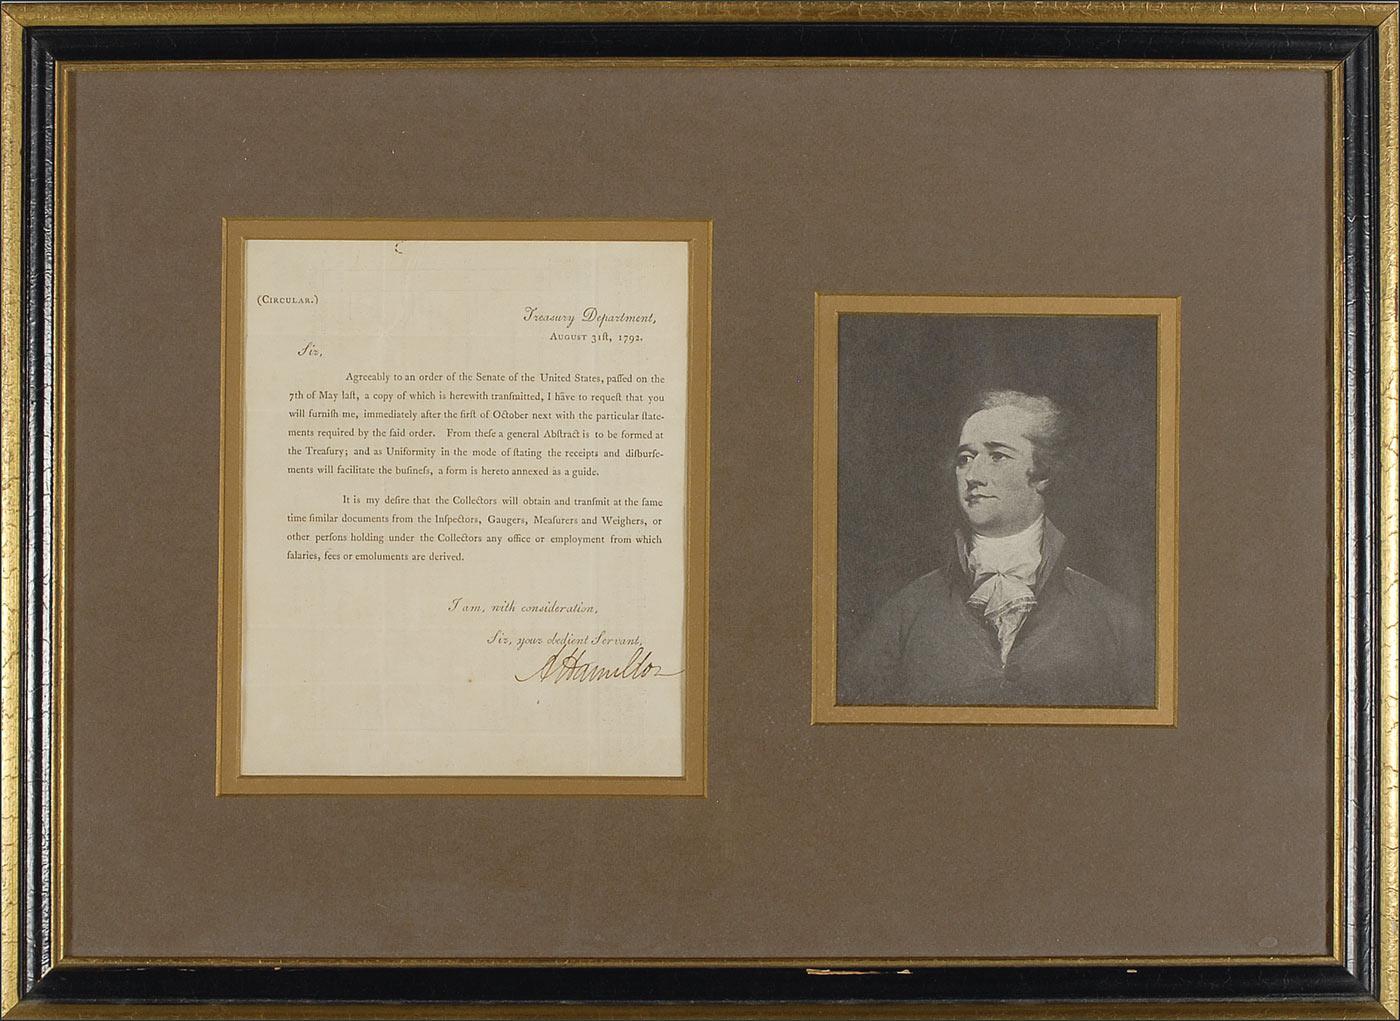 (Circular.)
Treasury Department,
August 31ſt, 1792.
Sir,
Agreeably to an order of the Senate of the United States, paſſed on the
7th of May laſt, a copy of which is herewith tranſmitted, I have to requeſt that you
will furniſh me, immediately after the firſt of October next with the particular ſtate-
ments required by the ſaid order. From theſe a general Abſtract is to be formed at
the Treaſury; and as Uniformity in the mode of ſtating the receipts and diſburſe-
ments will facilitate the buſineſs, a form is hereto annexed as a guide.
It is my deſire that the Collectors will obtain and tranſmit at the ſame
time ſimilar documents from the Inſpectors, Gaugers, Meaſurers and Weighers, or
other perſons holding under the Collectors any office or employment from which
ſalaries, fees or emoluments are derived.
I am, with consideration,
Sir, your obedient Servant,
A Hamilton